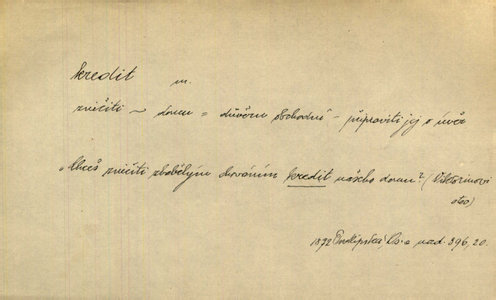 kredit m.
zničiti ~ domu = důvěru obchodní - připraviti jej o úvěr
„Chceš zničiti zbabělým chováním kredit našeho domu? (Viktorinovi
otec)
1872 Čes. a nad. 396, 20.